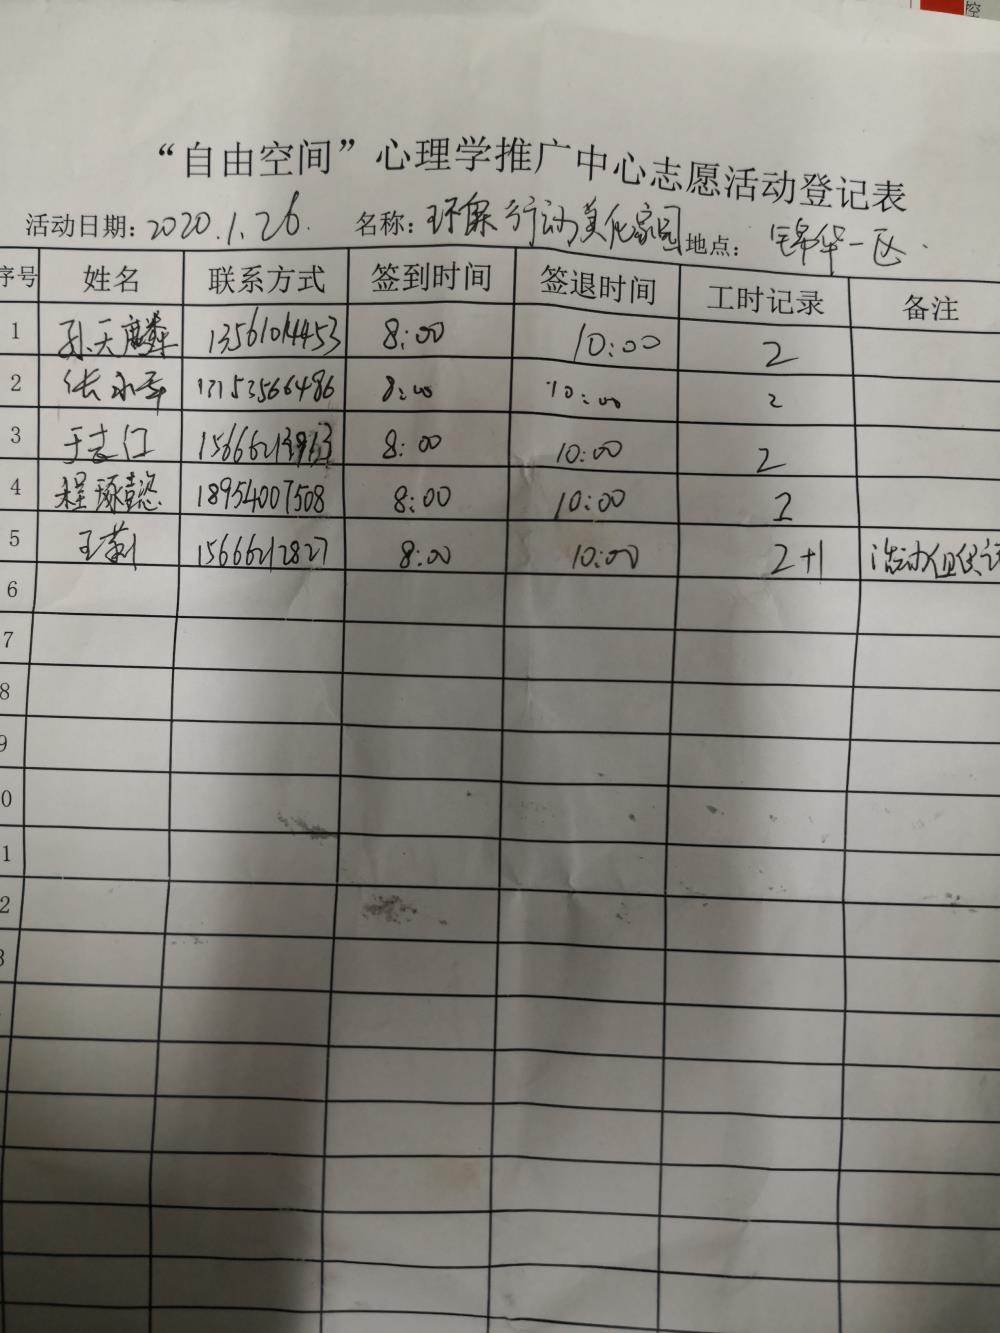 控
“自由空间”心理学推广中心志愿活动登记表
活动日期：2020.1.26. 名称：环保行动美化家园 地点：锦华一区.
序号 姓名 联系方式 签到时间 签退时间 工时记录 备注
1 孙天麟 13561014453 8:00 10:00 2
2 张永军 8:00 10:00 2
3 于志江 8:00 10:00 2
4 程琢懿 18954007508 8:00 10:00 2
5 王莉 15666212827 8:00 10:00 2+1 活动组织
6
7
8
9
0
1
2
3